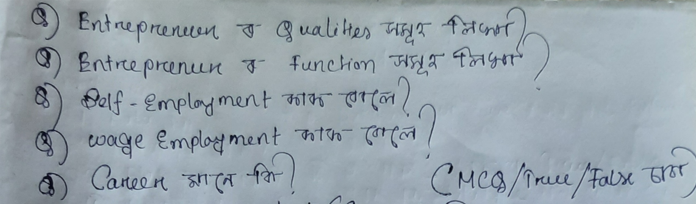 Q) Entrepreneur ৰ Qualities সমূহ লিখা?
Q) Entrepreneur ৰ function সমূহ লিখা?
Q) Self-Employment কাক বোলে?
Q) wage Employment কাক বোলে?
Q) Career মানে কি? (MCQ/True/False বাবে)